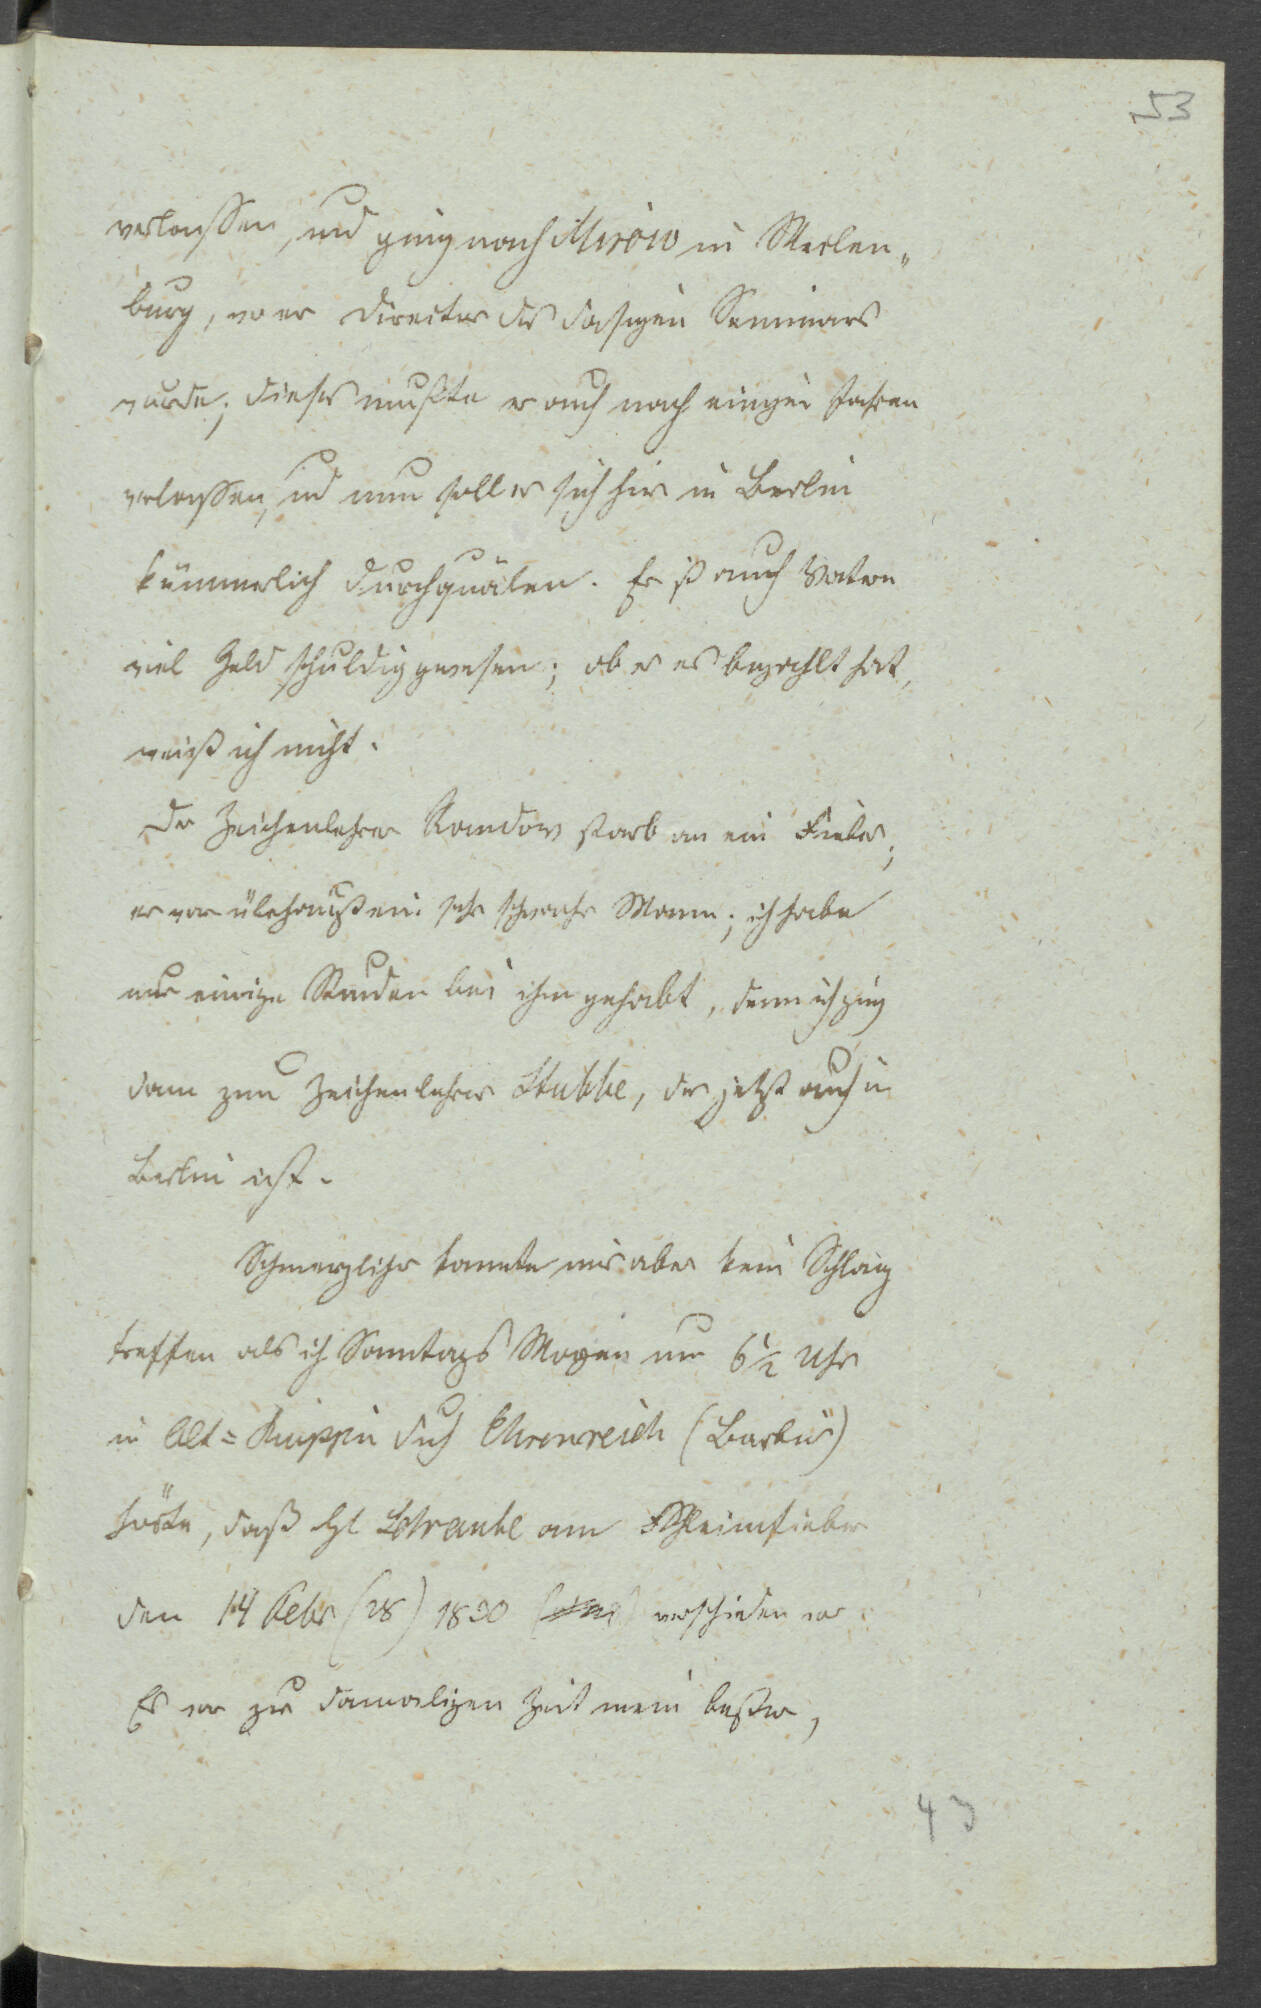 53
verlassen, und ging nach Mirow in Meklen„
burg, wo er Director des dasigen Seminars
wurde; dieses mußte er auch nach einigen Jahren
verlassen, und nun soll er sich hier in Berlin
kümmerlich durchquälen. Er ist auch Vatern
viel Geld schuldig gewesen; ob er es bezahlt hat,
weiß ich nicht.
Der Zeichenlehrer Ramdow starb an ein Fieber;
er war überhaupt ein sehr schwacher Mann; ich habe
nur einige Stunden bei ihm gehabt, denn ich ging
dann zum Zeichenlehrer Stubbe, der jetzt auch in
Berlin ist.
Schmerzlicher konnte mir aber kein Schlag
treffen als ich Sonntags Morgen um 6½ Uhr
in Alt=Ruppin durch Ehrenreich (Barbier)
hörte, daß Schwanke am Schleimfieber
den 14 Febr (28) 1830 verschieden war.
Er war zur damaligen Zeit mein bester,
43